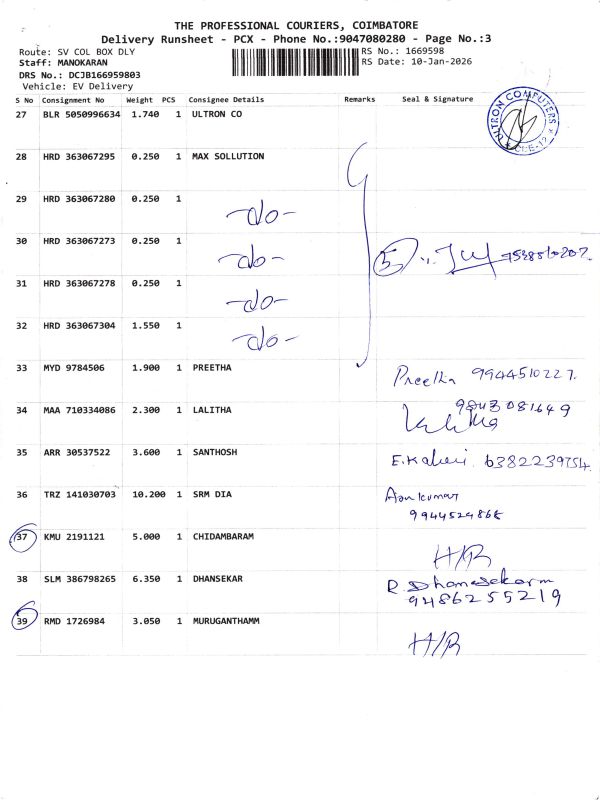 THE PROFESSIONAL COURIERS, COIMBATORE
Delivery Runsheet - PCX - Phone No.:9047080280 - Page No.:3
Route: SV COL BOX DLY
RS No.: 1669598
Staff: MANOKARAN
RS Date: 10-Jan-2026
DRS No.: DCJB166959803
Vehicle: EV Delivery
S No Consignment No Weight PCS Consignee Details Remarks Seal & Signature
27 BLR 5050996634 1.740 1 ULTRON CO
ULTRON COMPUTERS
28 HRD 363067295 0.250 1 MAX SOLLUTION
29 HRD 363067280 0.250 1 -do-
30 HRD 363067273 0.250 1 -do- 5
31 HRD 363067278 0.250 1 -do-
32 HRD 363067304 1.550 1 -do-
33 MYD 9784506 1.900 1 PREETHA Preetha 9944510227.
34 MAA 710334086 2.300 1 LALITHA 9843081649
Lalitha
35 ARR 30537522 3.600 1 SANTHOSH
36 TRZ 141030703 10.200 1 SRM DIA
9944524868
37 KMU 2191121 5.000 1 CHIDAMBARAM H/R
38 SLM 386798265 6.350 1 DHANSEKAR R. Dhanasekarm
9486255219
39 RMD 1726984 3.050 1 MURUGANTHAMM H/R